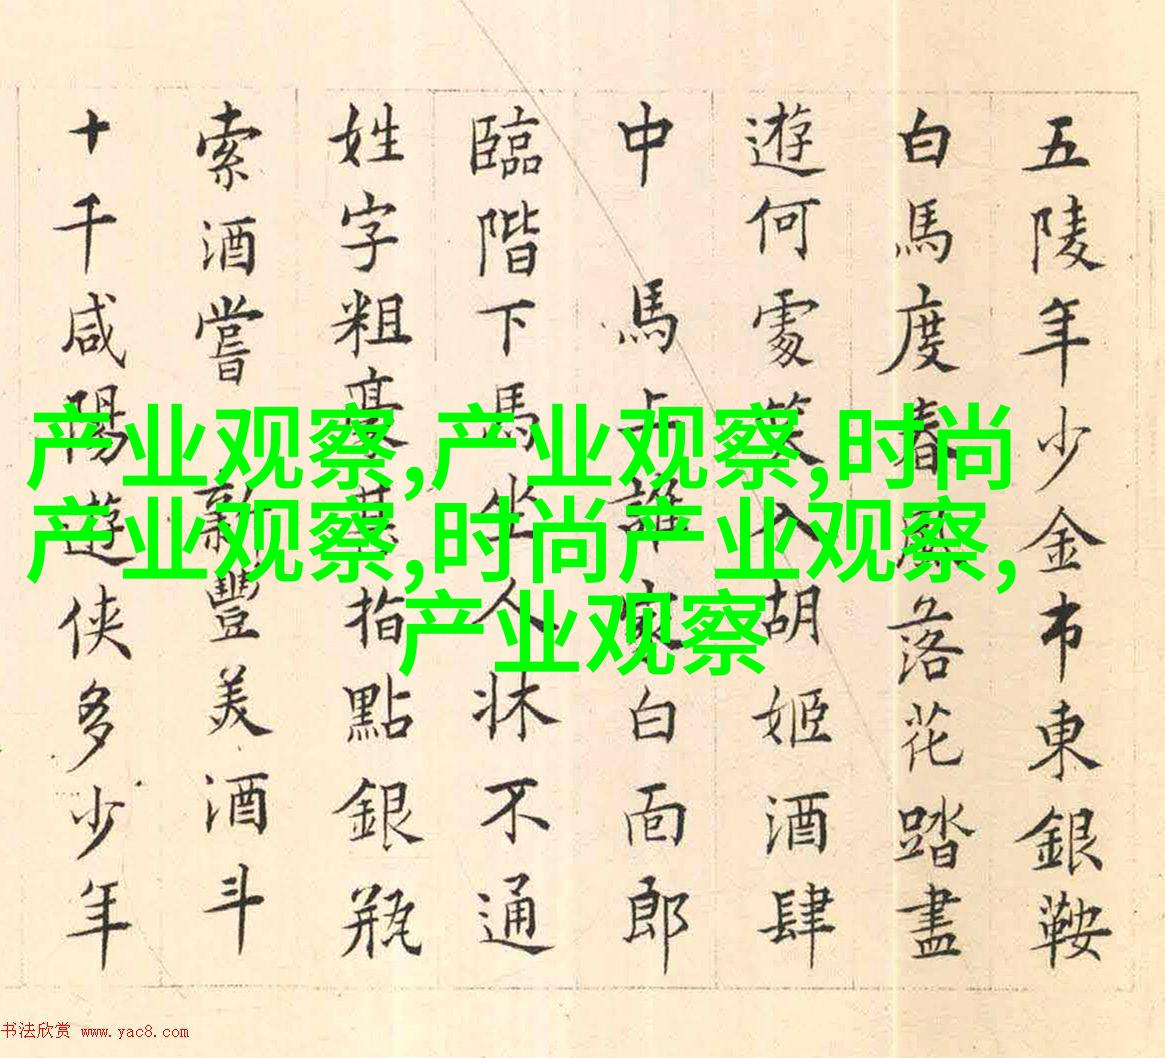 五陵年少金市東銀鞍
白馬度春風落花踏盡
遊何處笑入胡姬酒肆
中 馬上誰家白面郎
臨階下馬坐人牀不通
姓字粗豪甚指點銀瓶
索酒嘗 新豐美酒斗
十千咸陽遊俠多少年
产业观察,产业观察,时尚
产业观察,时尚产业观察,
产业观察
书法欣赏 www.yac8.com